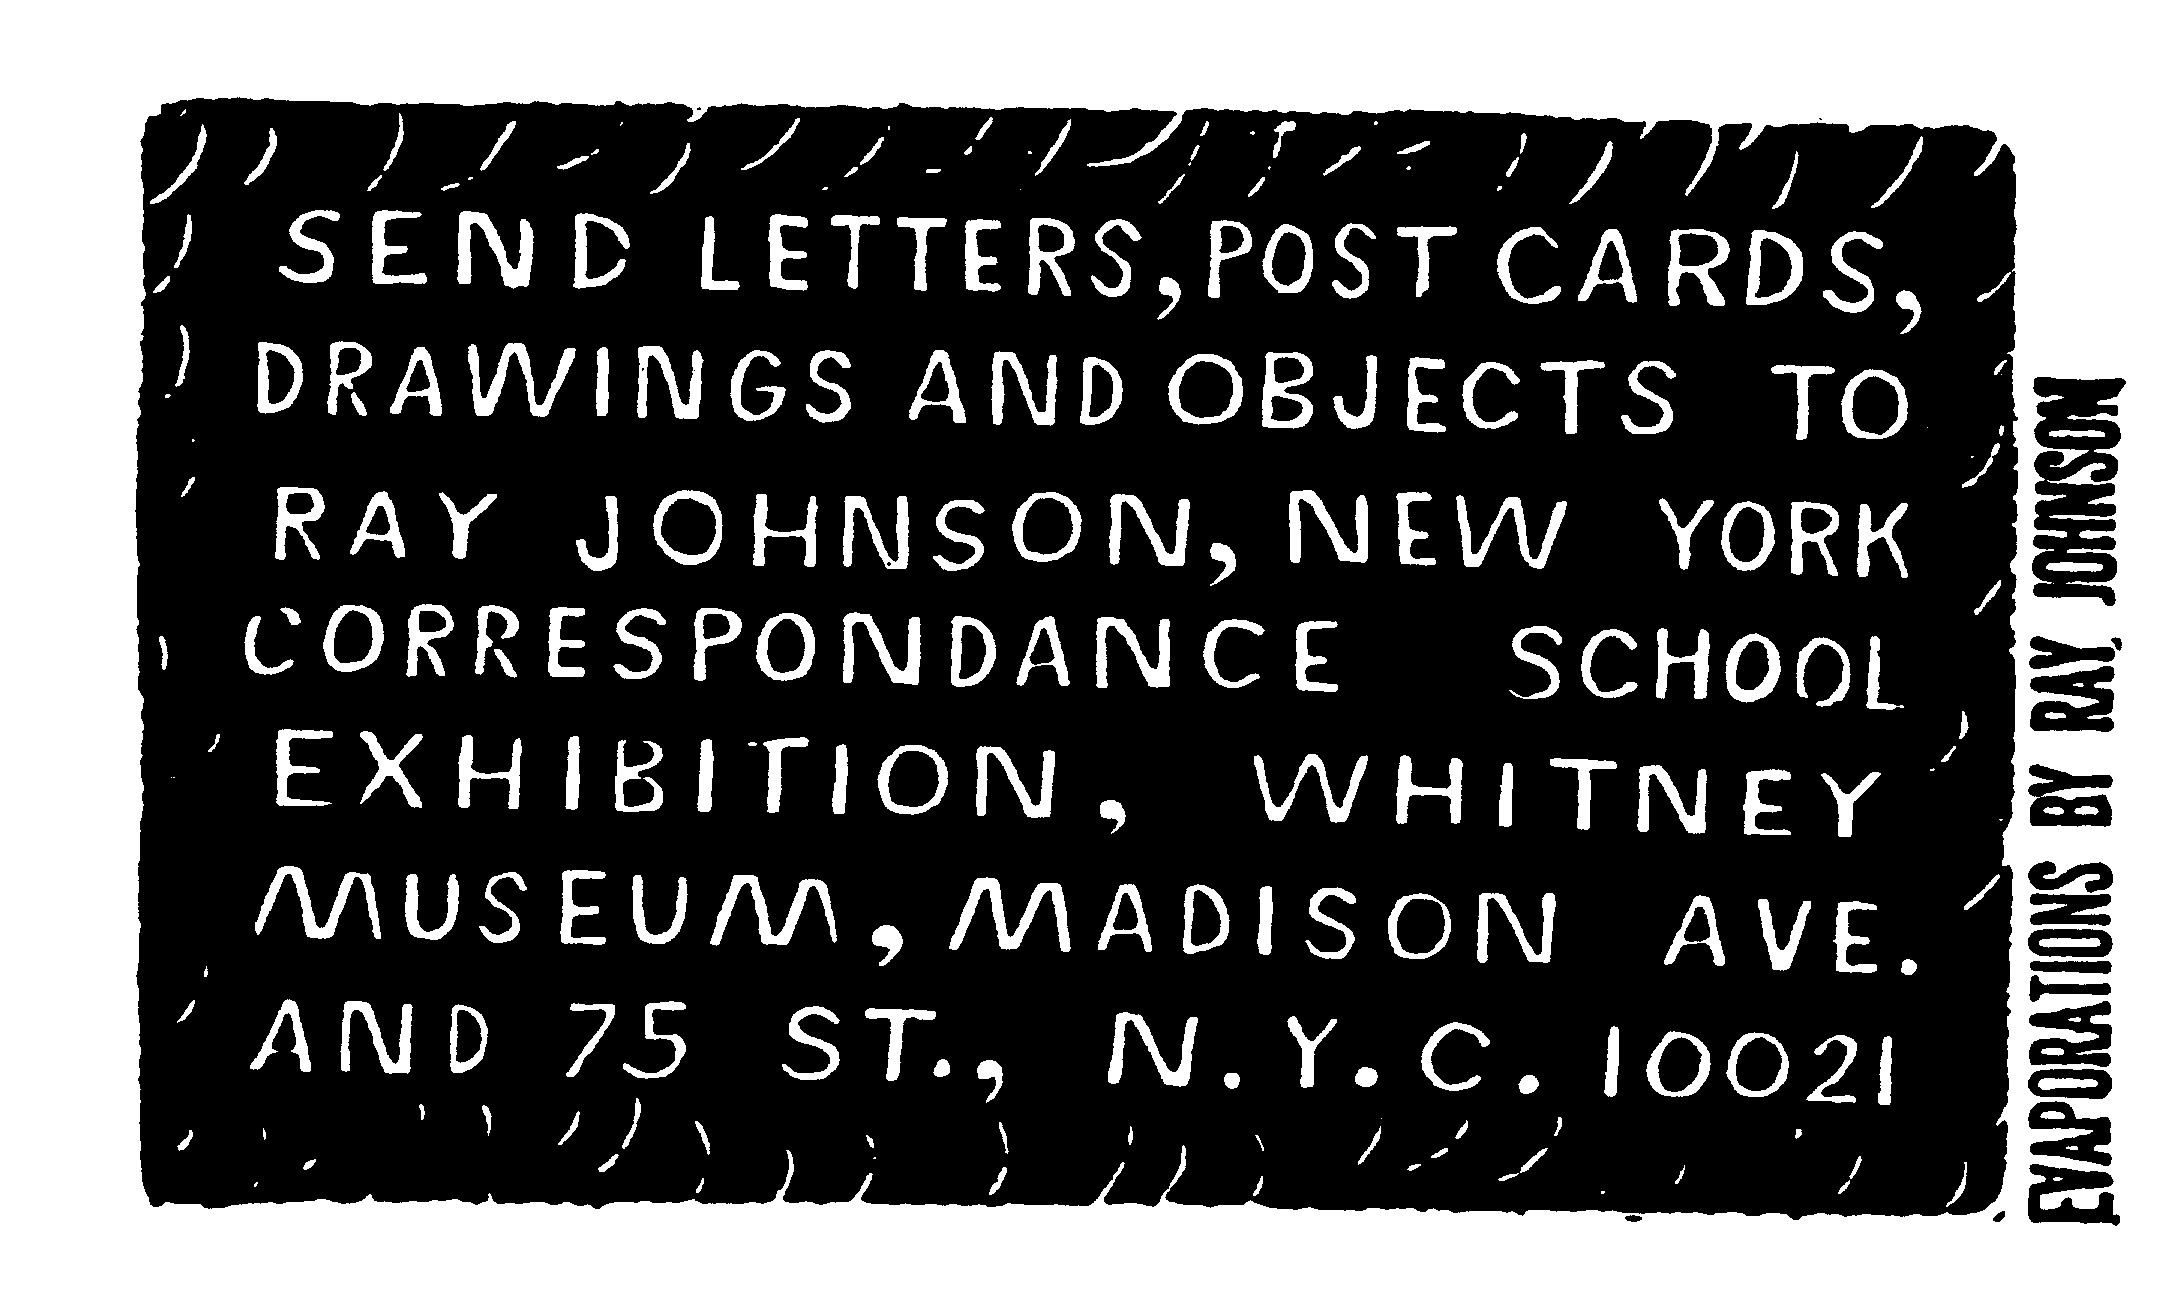 SEND LETTERS, POST CARDS,
DRAWINGS AND OBJECTS TO
RAY JOHNSON, NEW YORK
CORRESPONDANCE SCHOOL
EXHIBITION, WHITNEY
MUSEUM, MADISON AVE.
AND 75 ST., N.Y.C. 10021
EVAPORATIONS BY RAY JOHNSON